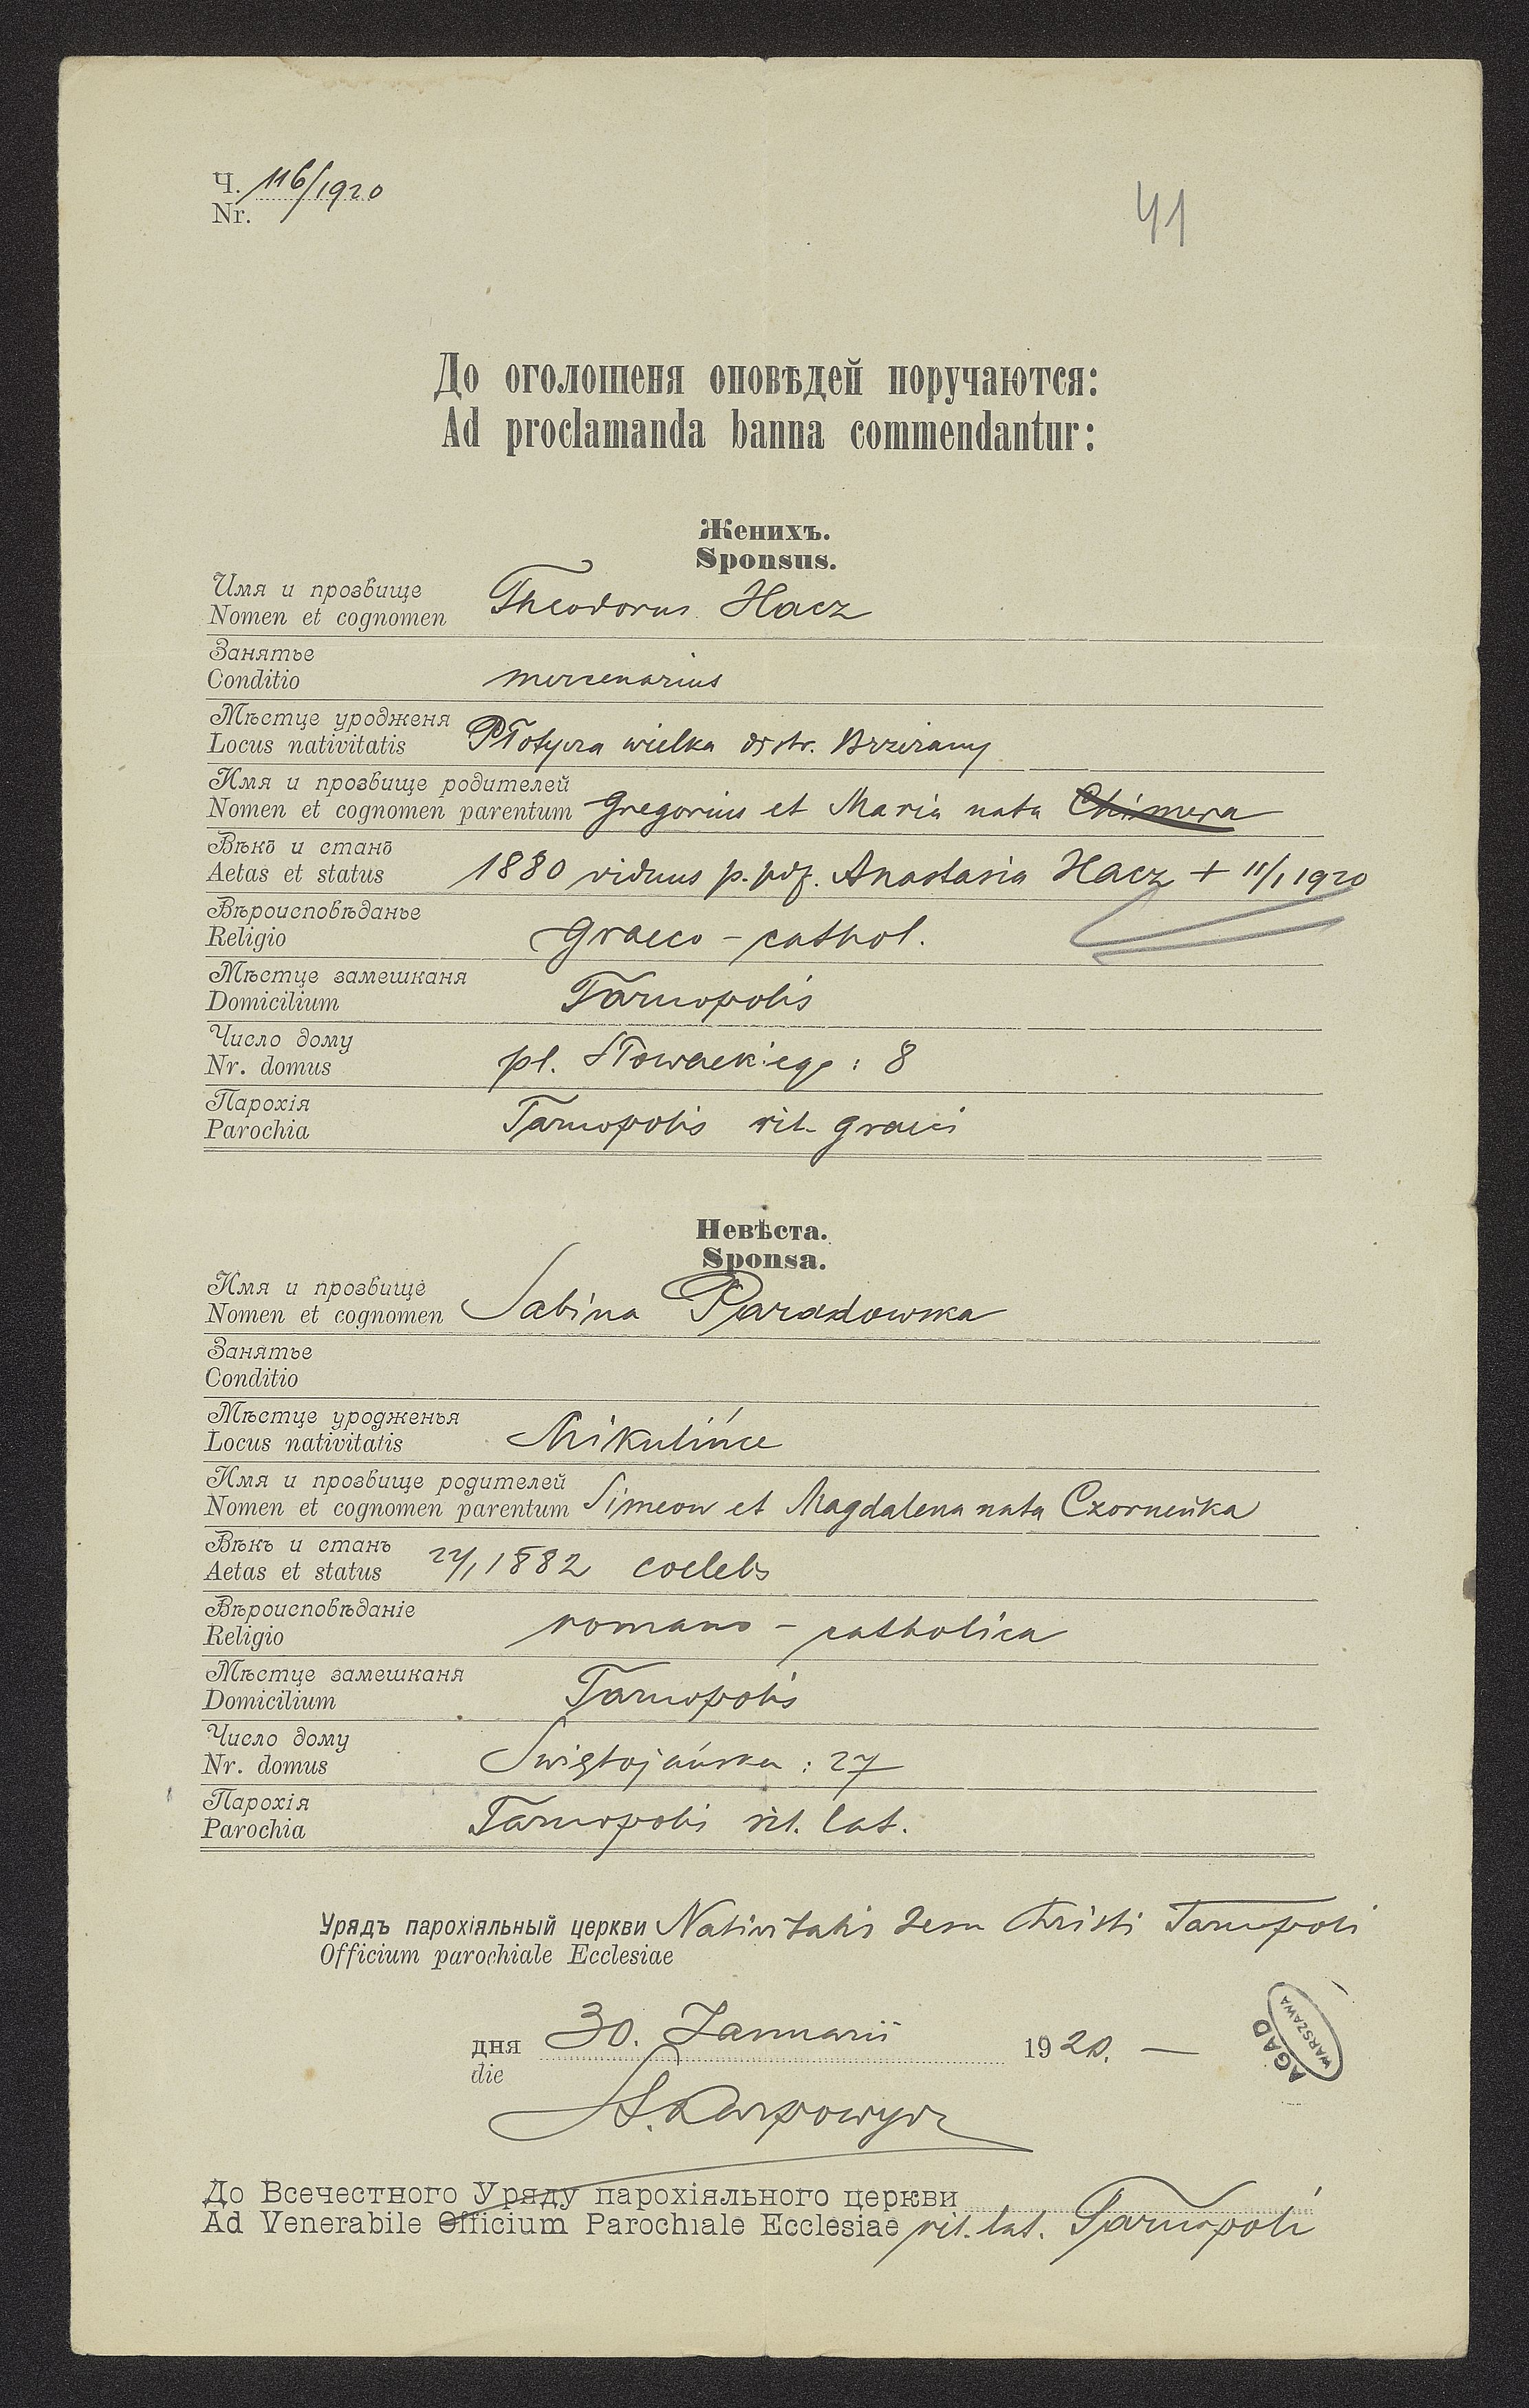 Ч. 116/1920
Nr.
41
До оголошеня оповѣдей поручаются:
Ad proclamanda banna commendantur:
Женихъ.
Sponsus.
Имя и прозвище
Nomen et cognomen Theodorus Hacz
Занятье
Conditio mercenarius
Мѣстце уродженя
Locus nativitatis Płotycza wielka distr. Brzeżany
Имя и прозвище родителей
Nomen et cognomen parentum Gregorius et Maria nata Chimera
Вѣкъ и станъ
Aetas et status 1880 viduus p. pdf. Anastasia Hacz + 11/1 1920
Вѣроисповѣданье
Religio graeco-cathol.
Мѣстце замешканя
Domicilium Tarnopolis
Число дому
Nr. domus pl. Słowackiego: 8
Парохія
Parochia Tarnopolis rit. graeci
Невѣста.
Sponsa.
Имя и прозвище
Nomen et cognomen Sabina Paradowska
Занятье
Conditio
Мѣстце уродженья
Locus nativitatis Mikulińce
Имя и прозвище родителей
Nomen et cognomen parentum Simeon et Magdalena nata Czorneńka
Вѣкъ и станъ
Aetas et status 1882 coelebs
Вѣроисповѣданіе
Religio romano-catholica
Мѣстце замешканя
Domicilium Tarnopolis
Число дому
Nr. domus Świętojańska: 27
Парохія
Parochia Tarnopolis rit. lat.
Урядъ парохіяльный церкви Nativitatis Jesu Christi Tarnopoli
Officium parochiale Ecclesiae
дня 30. Januarii 1920. —
die
AGAD
WARSZAWA
До Всечестного Уряду парохіяльного церкви
Ad Venerabile Officium Parochiale Ecclesiae rit. lat. Tarnopoli